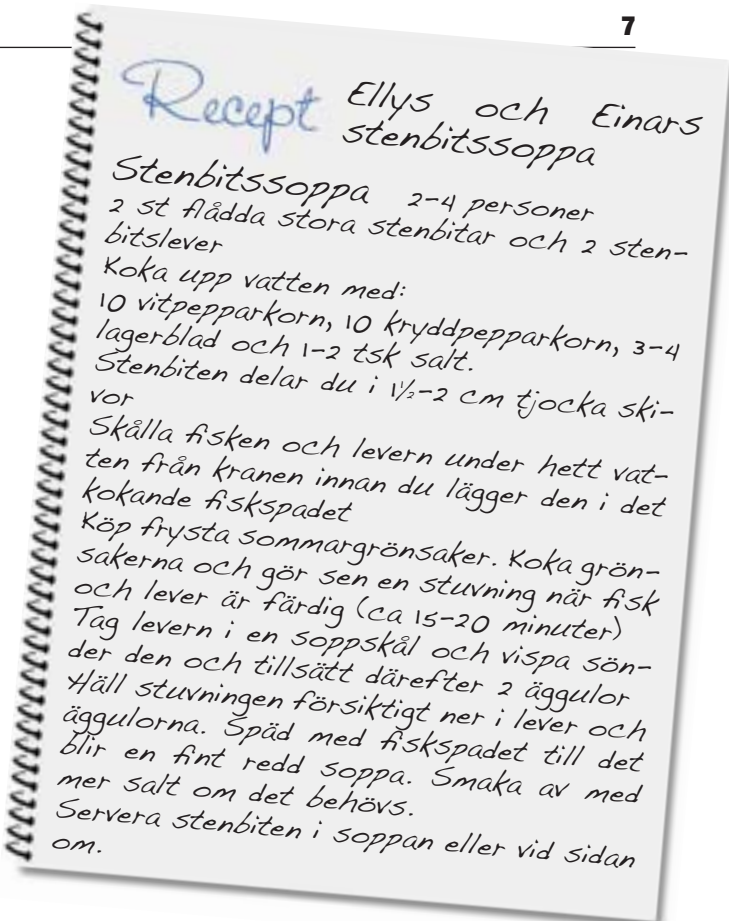 7
Recept Ellys och Einars
stenbitssoppa
Stenbitssoppa 2-4 personer
2 st flådda stora stenbitar och 2 sten-
bitslever
Koka upp vatten med:
10 vitpepparkorn, 10 kryddpepparkorn, 3-4
lagerblad och 1-2 tsk salt.
Stenbiten delar du i 1½-2 cm tjocka ski-
vor
Skålla fisken och levern under hett vat-
ten från kranen innan du lägger den i det
kokande fiskspadet
Köp frysta sommargrönsaker. Koka grön-
sakerna och gör sen en stuvning när fisk
och lever är färdig (ca 15-20 minuter)
Tag levern i en soppskål och vispa sön-
der den och tillsätt därefter 2 äggulor
Häll stuvningen försiktigt ner i lever och
äggulorna. Späd med fiskspadet till det
blir en fint redd soppa. Smaka av med
mer salt om det behövs.
Servera stenbiten i soppan eller vid sidan
om.